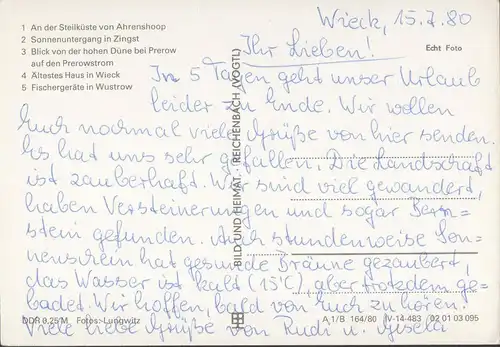 Wieck, 15.7.80
1 An der Steilküste von Ahrenshoop
2 Sonnenuntergang in Zingst
3 Blick von der hohen Düne bei Prerow
auf den Prerowstrom
4 Ältestes Haus in Wieck
5 Fischergeräte in Wustrow
Echt Foto
Ihr Lieben!
In 5 Tagen geht unser Urlaub
leider zu Ende. Wir wollen
Euch nochmal viele Grüße von hier senden.
Es hat uns sehr gefallen. Die Landschaft
ist zauberhaft. Wir sind viel gewandert,
haben Versteinerungen und sogar Bern=
stein gefunden. Auch stundenweise Son=
nenschein hat gesunde Bräune gezaubert,
das Wasser ist kalt (15°C), aber trotzdem ge=
badet. Wir hoffen, bald von Euch zu hören.
Viele liebe Grüße von Rudi u. Gisela
BILD UND HEIMAT, REICHENBACH (VOGTL)
DDR 0,25 M Fotos: Lungwitz
A 1/B 164/80 IV-14-483 02 01 03 095